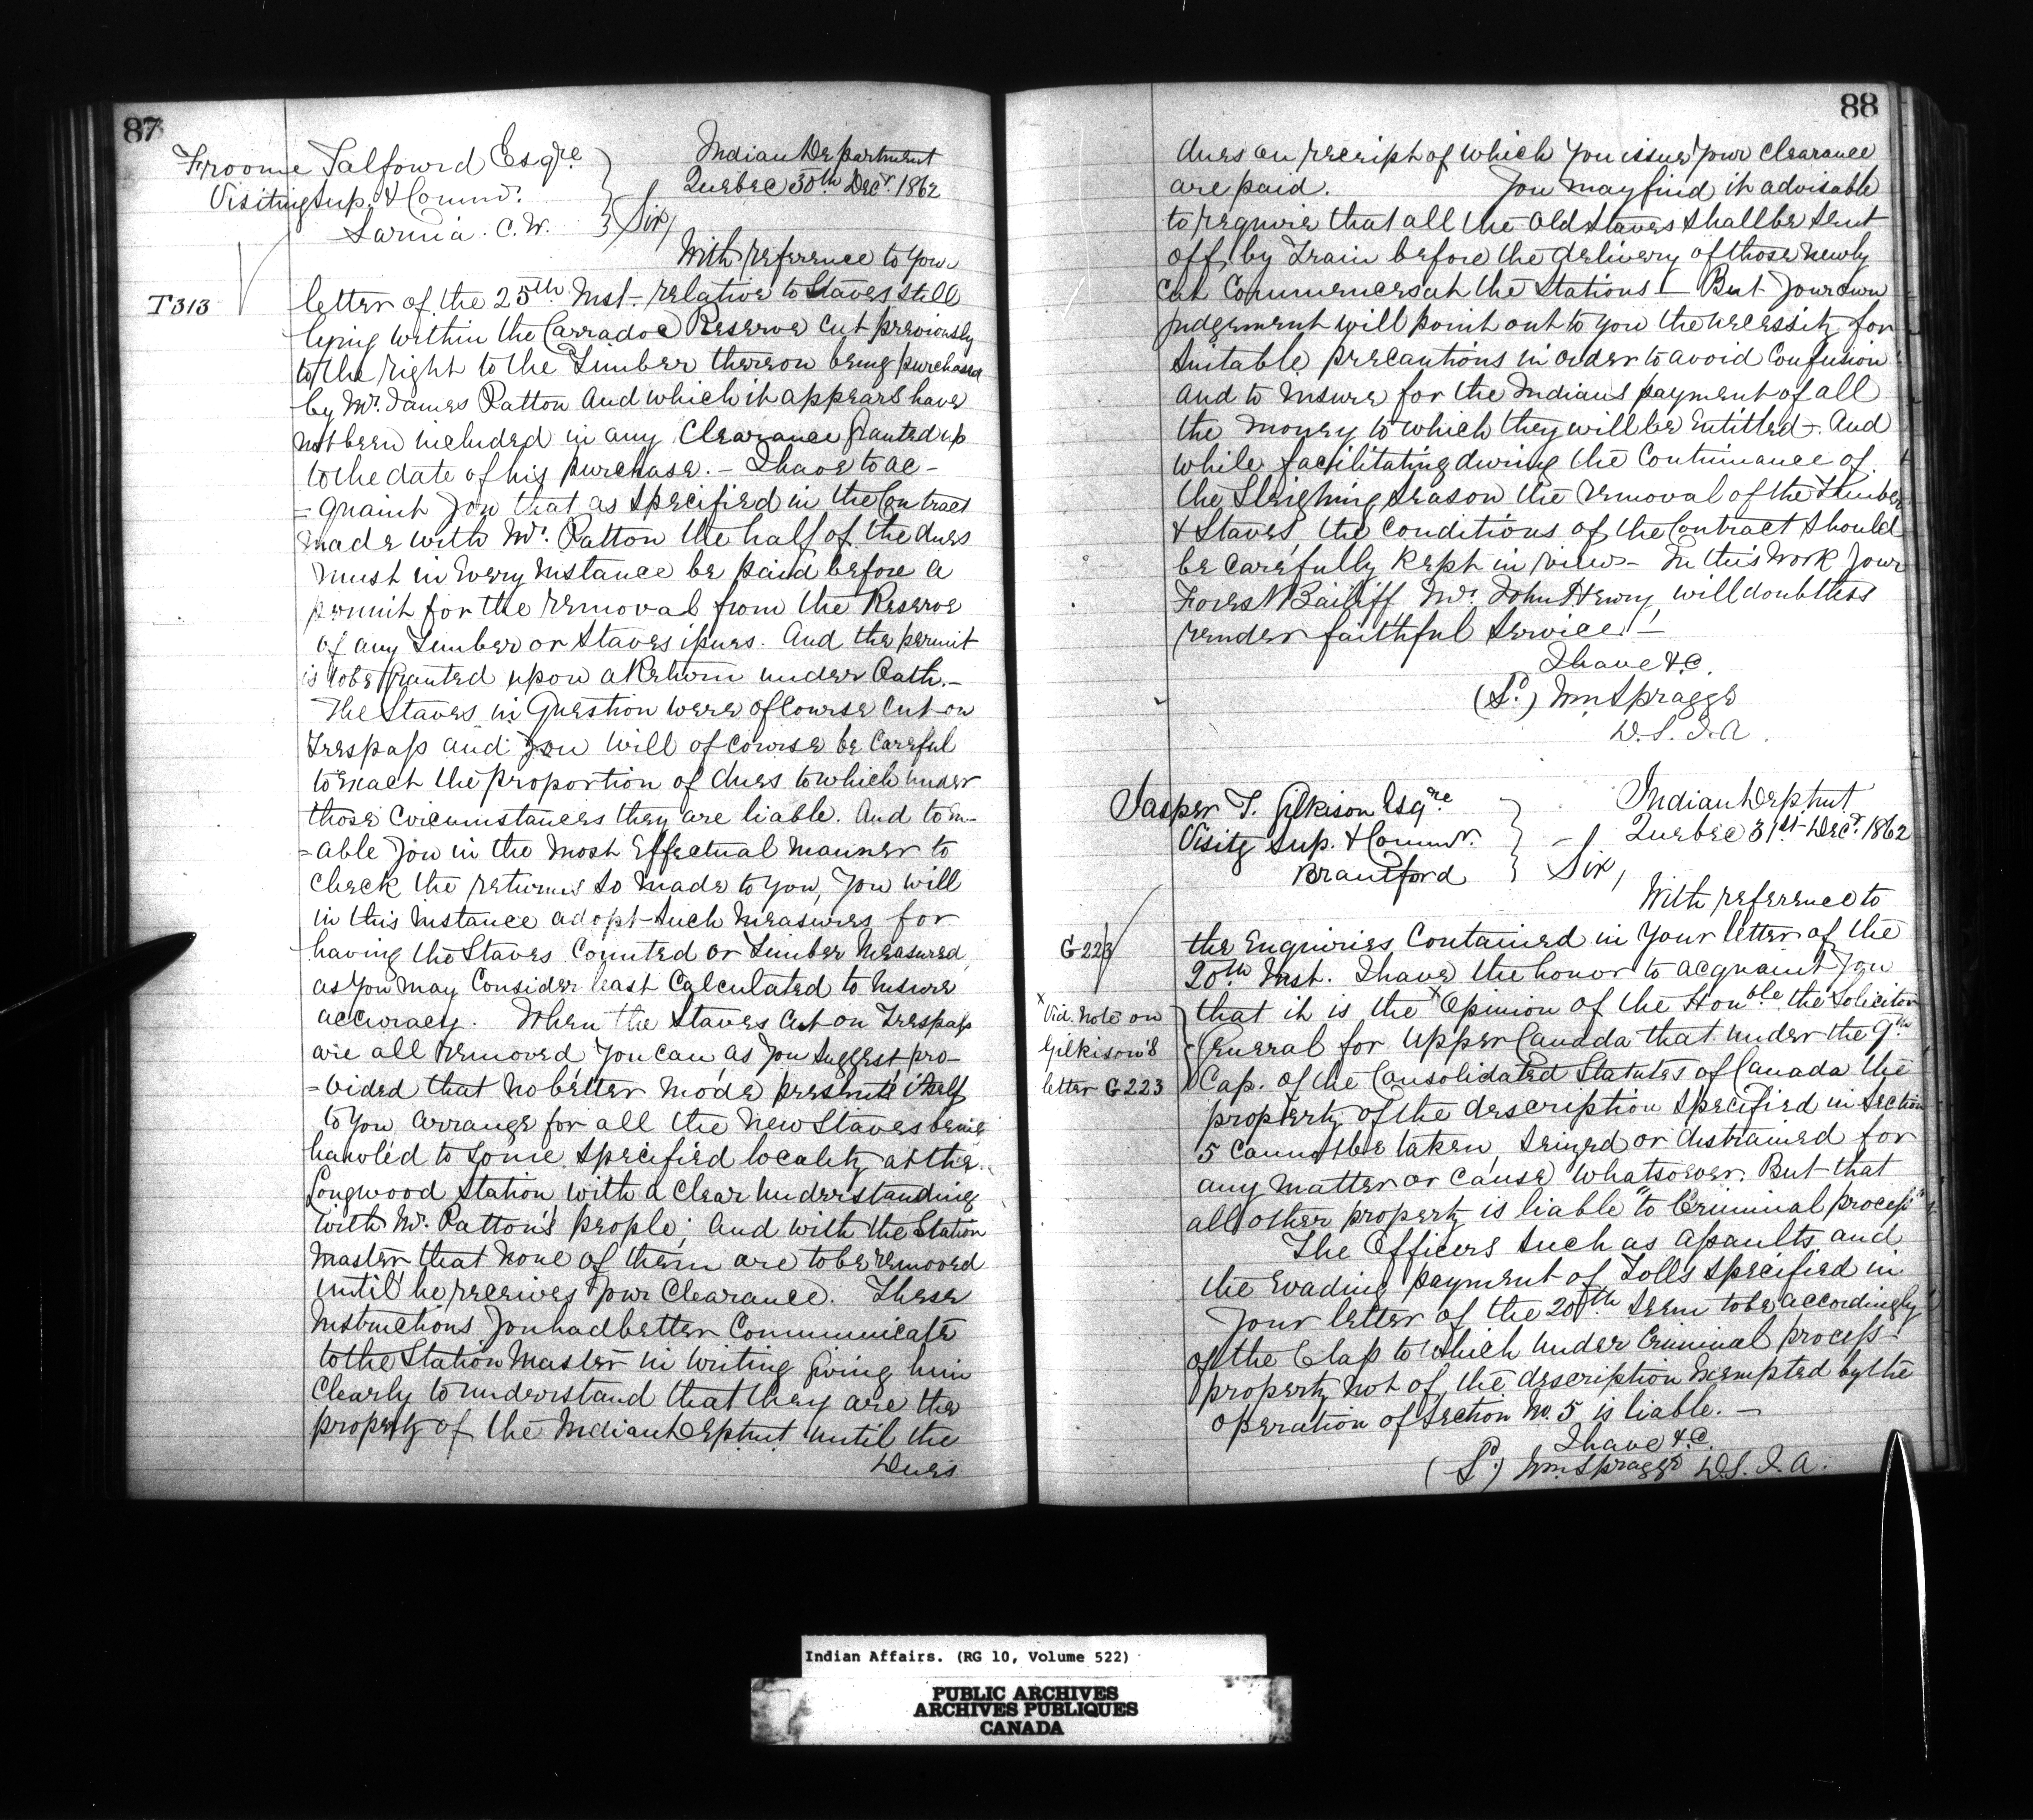 87
Froome Talfourd Esqre
Visiting Sup. & Commr.
Sarnia. C.W.
Indian Department
Quebec 30th Decr. 1862
Sir,
With reference to your
T313
letter of the 25th Inst- relative to Staves still
lying within the Carradoc Reserve cut previously
to the right to the Timber thereon being purchased
by Mr. James Patton and which it appears have
not been included in any Clearance granted up
to the date of his purchase. – I have to ac-
=quaint you that as specified in the Contract
made with Mr. Patton the half of the dues
must in every instance be paid before a
permit for the removal from the Reserve
of any Timber or Staves issues. And the permit
is to be granted upon a Return under Oath.–
The Staves in Question were of Course cut on
Trespass and you will of course be careful
to exact the proportion of dues to which under
those circumstances they are liable. And to en-
=able you in the most Effectual manner to
check the returns so made to you, you will
in this instance adopt such measures for
having the Staves Counted or Timber measured,
as you may Consider least Calculated to insure
accuracy. When the Staves cut on Trespass
are all removed you can, as you suggest, pro-
=vided that no better mode presents itself
to you arrange for all the new Staves being
hauled to some specified locality at the
Longwood Station with a clear understanding
with Mr. Patton's people; and with the Station
Master that none of them are to be removed
until he receives your Clearance. These
Instructions you had better Communicate
to the Station Master in writing giving him
clearly to understand that they are the
property of the Indian Deptmt until the
Dues
88
dues on receipt of which you issue your clearance
are paid. You may find it advisable
to require that all the old Staves shall be sent
off, by Train before the delivery of those newly
cut Commences at the Stations – But your own
judgement will point out to you the necessity for
suitable precautions in order to avoid Confusion
and to insure for the Indians payment of all
the money to which they will be Entitled –. And
while facilitating during the Continuance of
the Sleighing season the removal of the Timber
& Staves, the conditions of the Contract should
be carefully kept in view – In this work your
Forest Bailiff Mr. John Henry, will doubtless
render faithful service! –
I have &c.
(Sd.) Wm Spragge
D.S.I.A.
Jasper T. Gilkison Esqre
Visitg Sup. & Commr.
Brantford
Indian Deptmt
Quebec 31st Decr. 1862
Sir,
With reference to
G 223
the Enquiries Contained in your letter of the
20th Inst. I have the honor to acquaint you
x Vid. Note on
Gilkison's
letter G 223
that it is the x Opinion of the Honble the Solicitor
General for Upper Canada that under the 9th
Cap. of the Consolidated Statutes of Canada the
property of the description specified in Section
5 cannot be taken, seized or distrained for
any matter or cause whatsoever. But that
all other property is liable "to Criminal process"
The Offices such as assaults and
the evading payment of Tolls specified in
your letter of the 20th seem to be accordingly
of the Class to which under Criminal process
property not of the description Exempted by the
operation of Section No. 5 is liable. –
I have &c.
(Sd.) Wm. Spragge D.S.I.A.
Indian Affairs. (RG 10, Volume 522)
PUBLIC ARCHIVES
ARCHIVES PUBLIQUES
CANADA